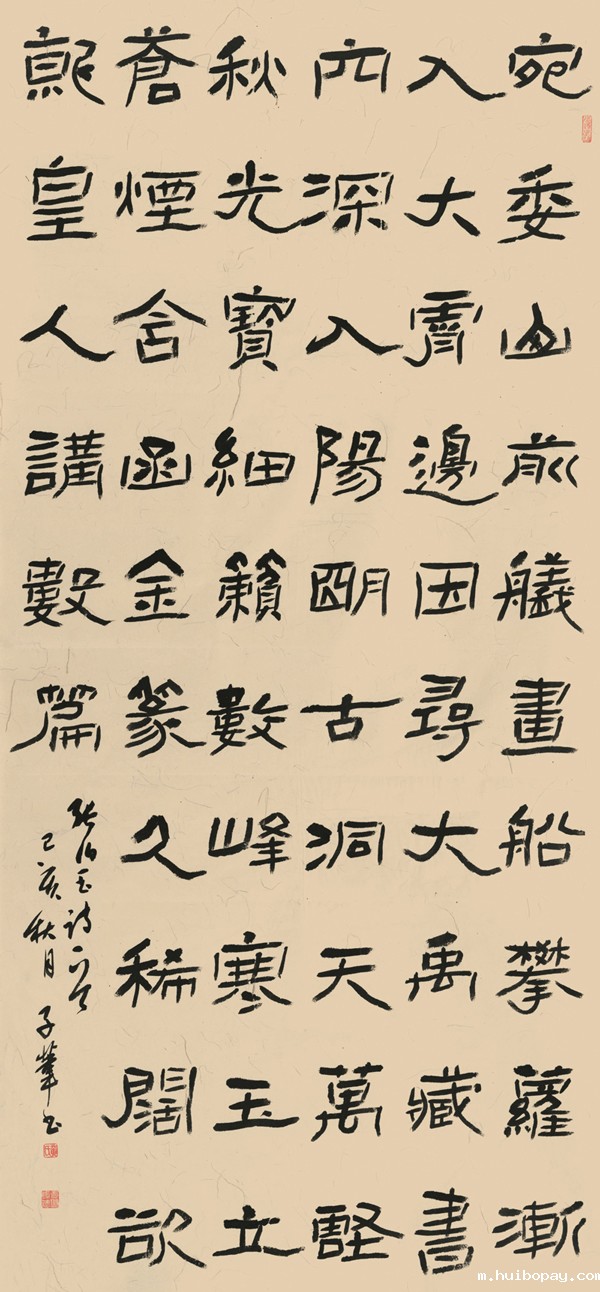 宛委山前艤畫船攀蘿漸
入大霄邊因尋大禹藏書
穴深入陽明古洞天萬壑
秋光寶細籟數峰寒玉立
蒼煙含函金篆久稀闊欲
就皇人講數篇
張伯玉詩一首
己亥秋月 子 书
m.huibopay.com